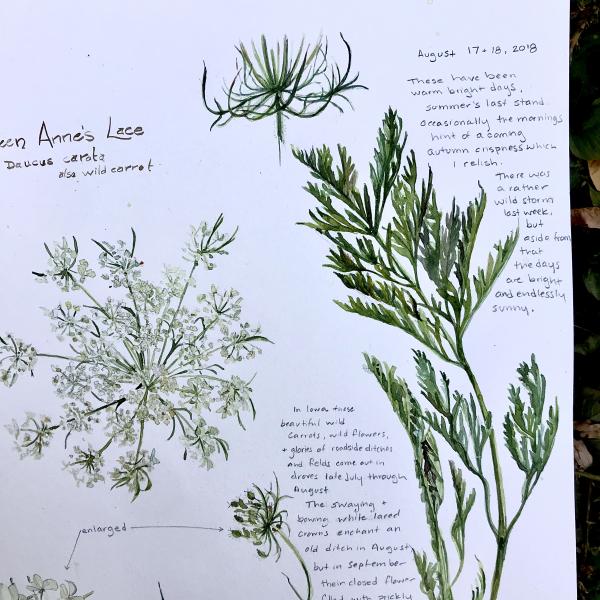 een Anne's Lace
Daucus carota
also wild carrot
August 17 + 18, 2018
These have been
warm bright days,
summer's last stand.
Occasionally the mornings
hint of a coming
autumn crispness which
I relish.
There was
a rather
wild storm
last week,
but
aside from
that
the days
are bright
and endlessly
sunny.
In Iowa these
beautiful wild
carrots, wild flowers,
+ glories of roadside ditches
and fields come out in
droves late July through
August.
The swaying +
bowing white laced
crowns enchant an
old ditch in August,
but in september
their closed flower
filled with prickly
enlarged